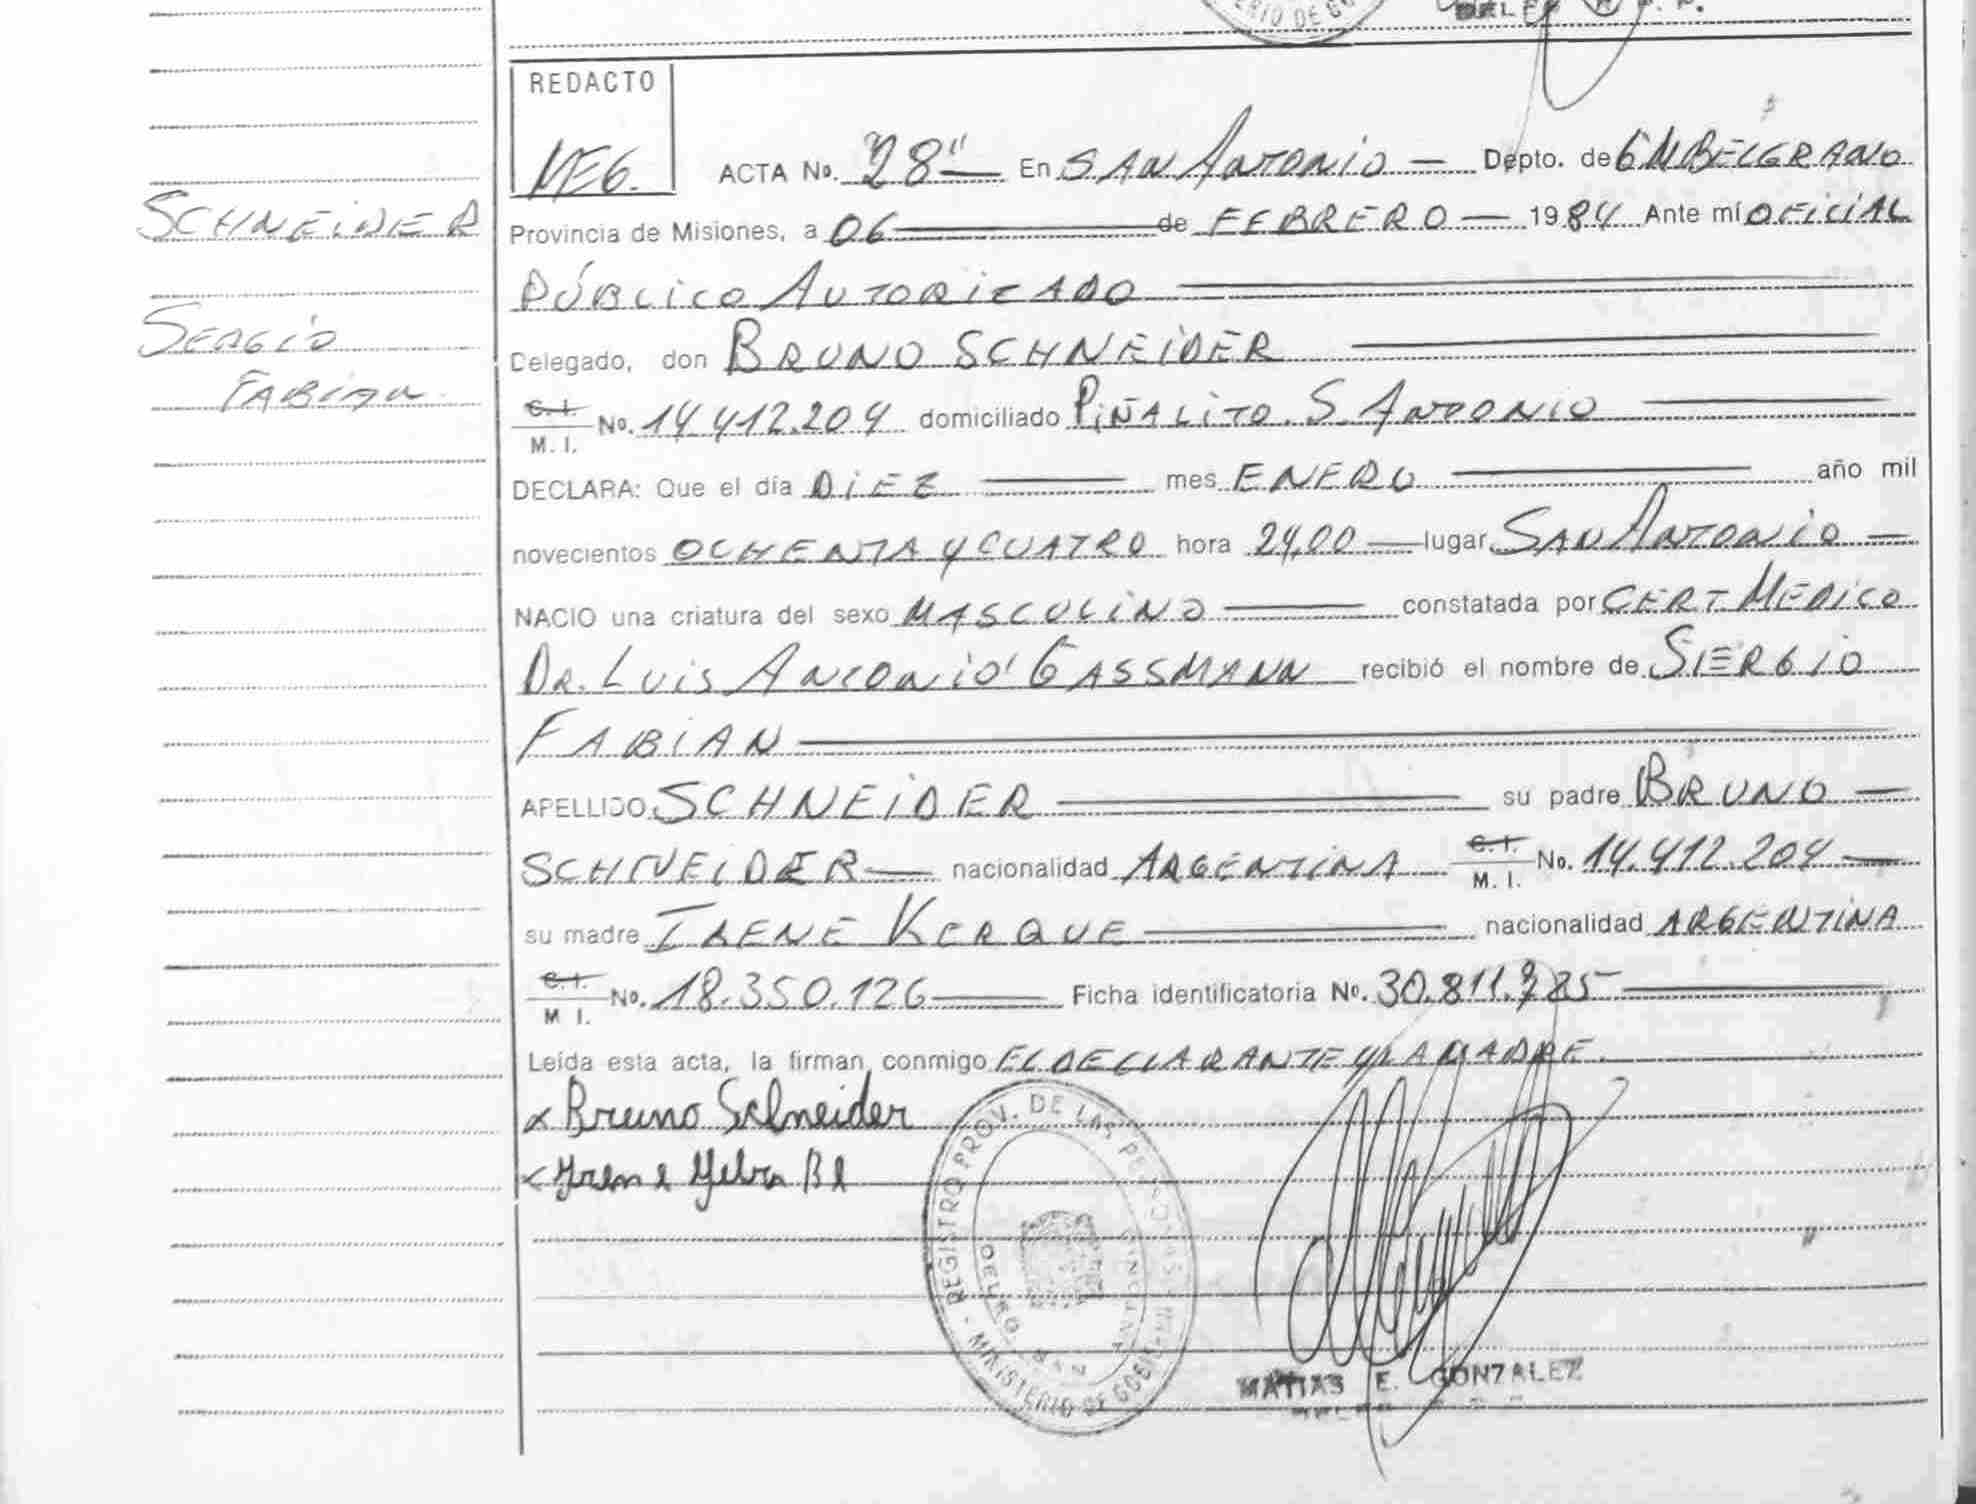 REDACTO
MEG.
ACTA No. 28" En SAN ANTONIO Depto. de GM BELGRANO
SCHNEIDER
Provincia de Misiones, a 06 de FEBRERO 1984 Ante mí OFICIAL
PÚBLICO AUTORIZADO
SERGIO
Delegado, don BRUNO SCHNEIDER
FABIAN
C.I.
M. I. No. 14.412.204 domiciliado PIÑALITO. S. ANTONIO
DECLARA: Que el día DIEZ mes ENERO año mil
novecientos OCHENTA Y CUATRO hora 24,00 lugar SAN ANTONIO
NACIO una criatura del sexo MASCULINO constatada por CERT. MEDICO
DR. LUIS ANTONIO GASSMANN recibió el nombre de SERGIO
FABIAN
APELLIDO SCHNEIDER su padre BRUNO
SCHNEIDER nacionalidad ARGENTINA C.I. M. I. No. 14.412.204
su madre IRENE KERQUE nacionalidad ARGENTINA
C.I.
M I. No. 18.350.126 Ficha identificatoria No. 30.811.785
Leída esta acta, la firman conmigo EL DECLARANTE Y LA MADRE.
x Bruno Schneider
REGISTRO PROV. DE LAS PERSONAS - MINISTERIO DE GOB
DELEG. SAN ANTONIO
MATIAS E. GONZALEZ